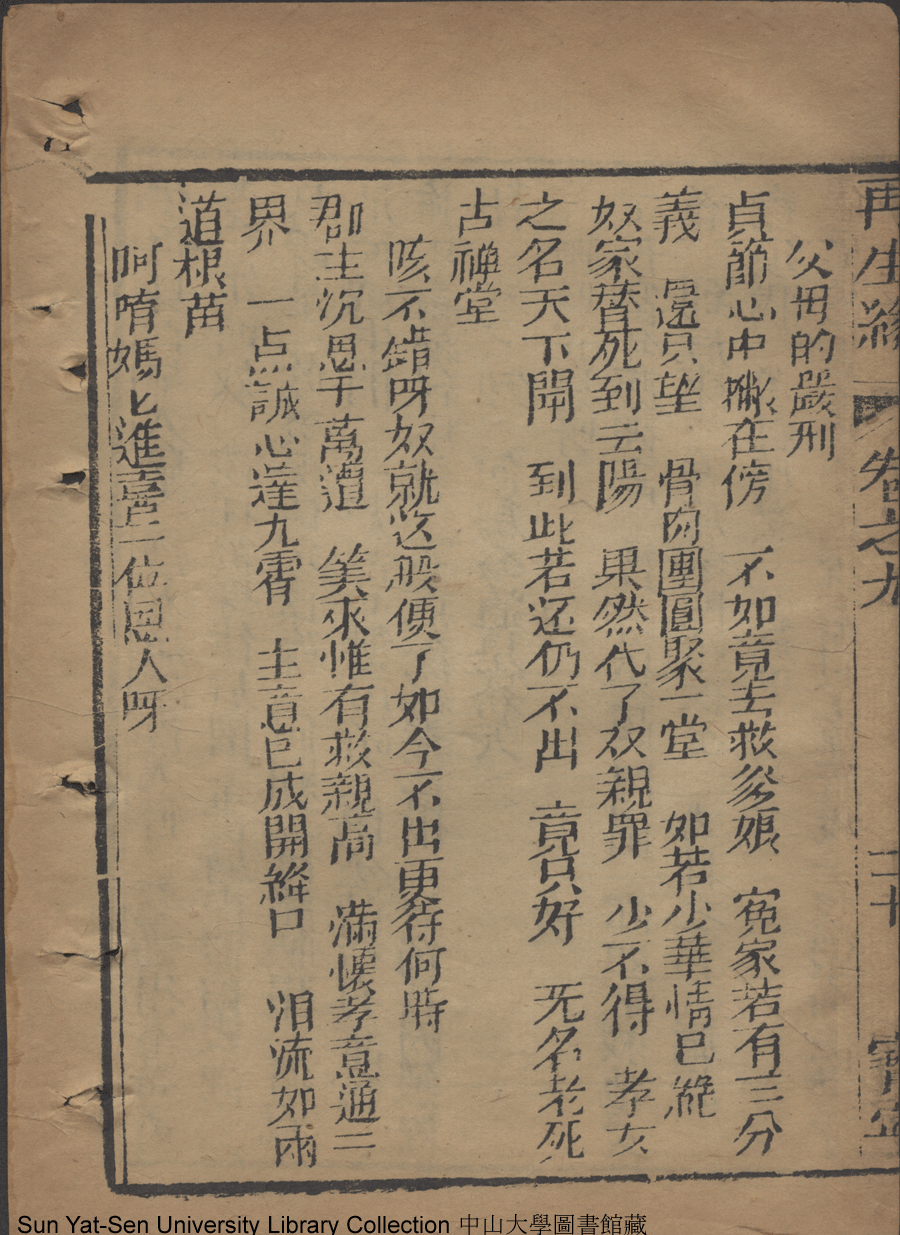 再生緣 卷之九 二十
父母的嚴刑
貞節心中撇在傍 不如竟去救爹娘 寃家若有三分
義 還只望 骨肉團圓聚一堂 如若少華情已絕
奴家替死到云陽 果然代了双親罪 少不得 孝女
之名天下聞 到此若还仍不出 竟只好 旡名老死
古禅堂
咳不錯呀奴就这般便了如今不出更待何時
郡主沉思千萬遭 筭來惟有救親高 滿懷孝意通三
界 一点誠心達九霄 主意已成開絳口 泪流如雨
道根苗
呵唷媽匕進喜二位恩人呀
Sun Yat-Sen University Library Collection 中山大學圖書館藏